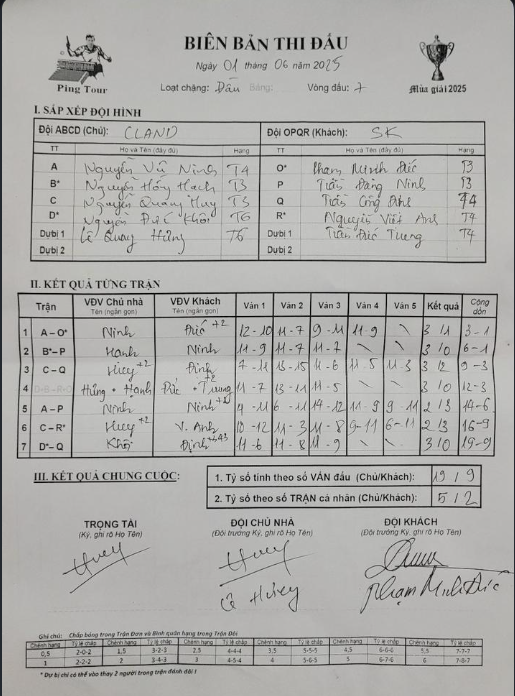 BIÊN BẢN THI ĐẤU
Ngày 01 tháng 06 năm 2025
Ping Tour
Loạt chặng: Dần Bảng: Vòng đấu: 7
Mùa giải 2025
I. SẮP XẾP ĐỘI HÌNH
Đội ABCD (Chủ): CLAND Đội OPQR (Khách): SK
TT Họ và Tên (đầy đủ) Hạng TT Họ và Tên (đầy đủ) Hạng
A Nguyễn Vũ Ninh T4 O* Phạm Minh Đức T3
B* Nguyễn Hồng Hạnh T3 P Trần Đăng Ninh T3
C Nguyễn Quang Huy T5 Q Trần Công Định T4
D* Nguyễn Đức Khôi T6 R* Nguyễn Việt Anh T4
Dự bị 1 Lê Quang Hưng T6 Dự bị 1 Trần Đức Trung T4
Dự bị 2 Dự bị 2
II. KẾT QUẢ TỪNG TRẬN
Trận VĐV Chủ nhà VĐV Khách Ván 1 Ván 2 Ván 3 Ván 4 Ván 5 Kết quả Cộng dồn
Tên (ngắn gọn) Tên (ngắn gọn)
1 A – O* Ninh Đức +2 12-10 11-7 9-11 11-9 \ 3/1 3-1
2 B*– P Hạnh Ninh 11-9 11-7 11-7 \ \ 3/0 6-1
3 C – Q Huy +2 Định 7-11 13-15 11-6 11-5 11-3 3/2 9-3
4 Hưng + Hạnh Đức + Trung 11-7 13-11 11-5 \ \ 3/0 12-3
5 A – P Ninh Ninh 9-11 6-11 14-12 11-9 9-11 2/3 14-6
6 C – R* Huy +2 V. Anh 10-12 11-3 11-8 9-11 6-11 2/3 16-9
7 D*– Q Khôi Định 11-6 11-8 11-9 \ \ 3/0 19-9
III. KẾT QUẢ CHUNG CUỘC:
1. Tỷ số tính theo số VÁN đấu (Chủ/Khách): 19/9
2. Tỷ số theo số TRẬN cá nhân (Chủ/Khách): 5/2
TRỌNG TÀI ĐỘI CHỦ NHÀ ĐỘI KHÁCH
(Ký, ghi rõ Họ Tên) (Đội trưởng Ký, ghi rõ Họ Tên) (Đội trưởng Ký, ghi rõ Họ Tên)
Huy
Phạm Minh Đức
Ghi chú: Chấp bóng trong Trận Đơn và Bình quân hạng trong Trận Đôi
Chênh hạng Tỷ lệ chấp Chênh hạng Tỷ lệ chấp Chênh hạng Tỷ lệ chấp Chênh hạng Tỷ lệ chấp Chênh hạng Tỷ lệ chấp Chênh hạng Tỷ lệ chấp
0,5 2-0-2 1,5 3-2-3 2,5 4-4-4 3,5 5-5-5 4,5 6-6-6 5,5 7-7-7
1 2-2-2 2 3-4-3 3 4-5-4 4 5-6-5 5 6-7-6 6 7-8-7
* Dự bị chỉ có thể vào thay 2 người trong trận đánh đôi !